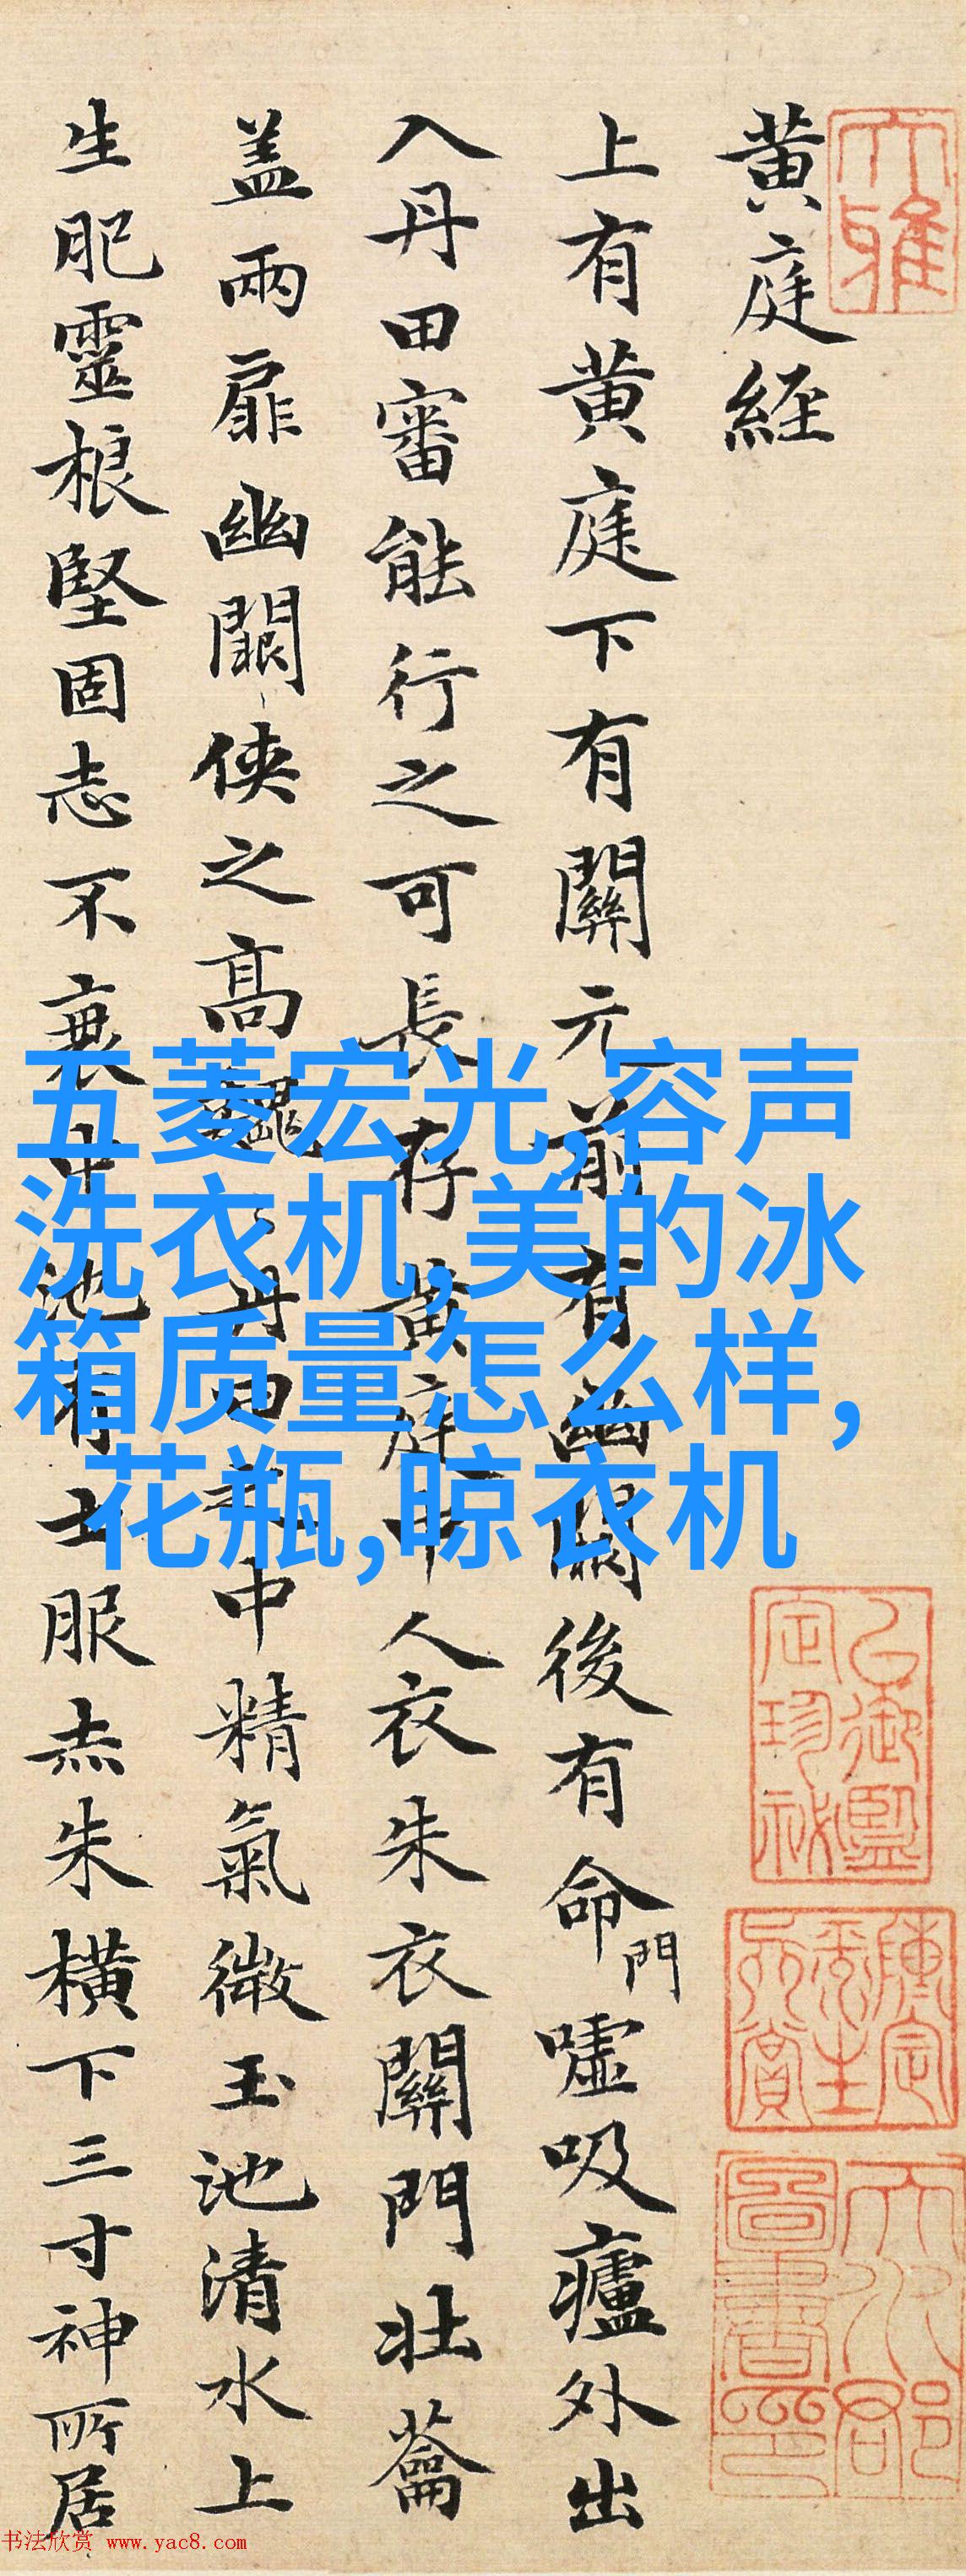 黄庭經
上有黄庭下有關元前有幽闕後有命門嘘吸廬外出
入丹田審能行之可長存黄庭中人衣朱衣關門壯蘥
蓋兩扉幽闕侠之高巍丹田之中精氣微玉池清水上
生肥靈根堅固志不衰中池有士服赤朱横下三寸神所居
五菱宏光,容声
洗衣机,美的冰
箱质量怎么样,
花瓶,晾衣机
书法欣赏 www.yac8.com